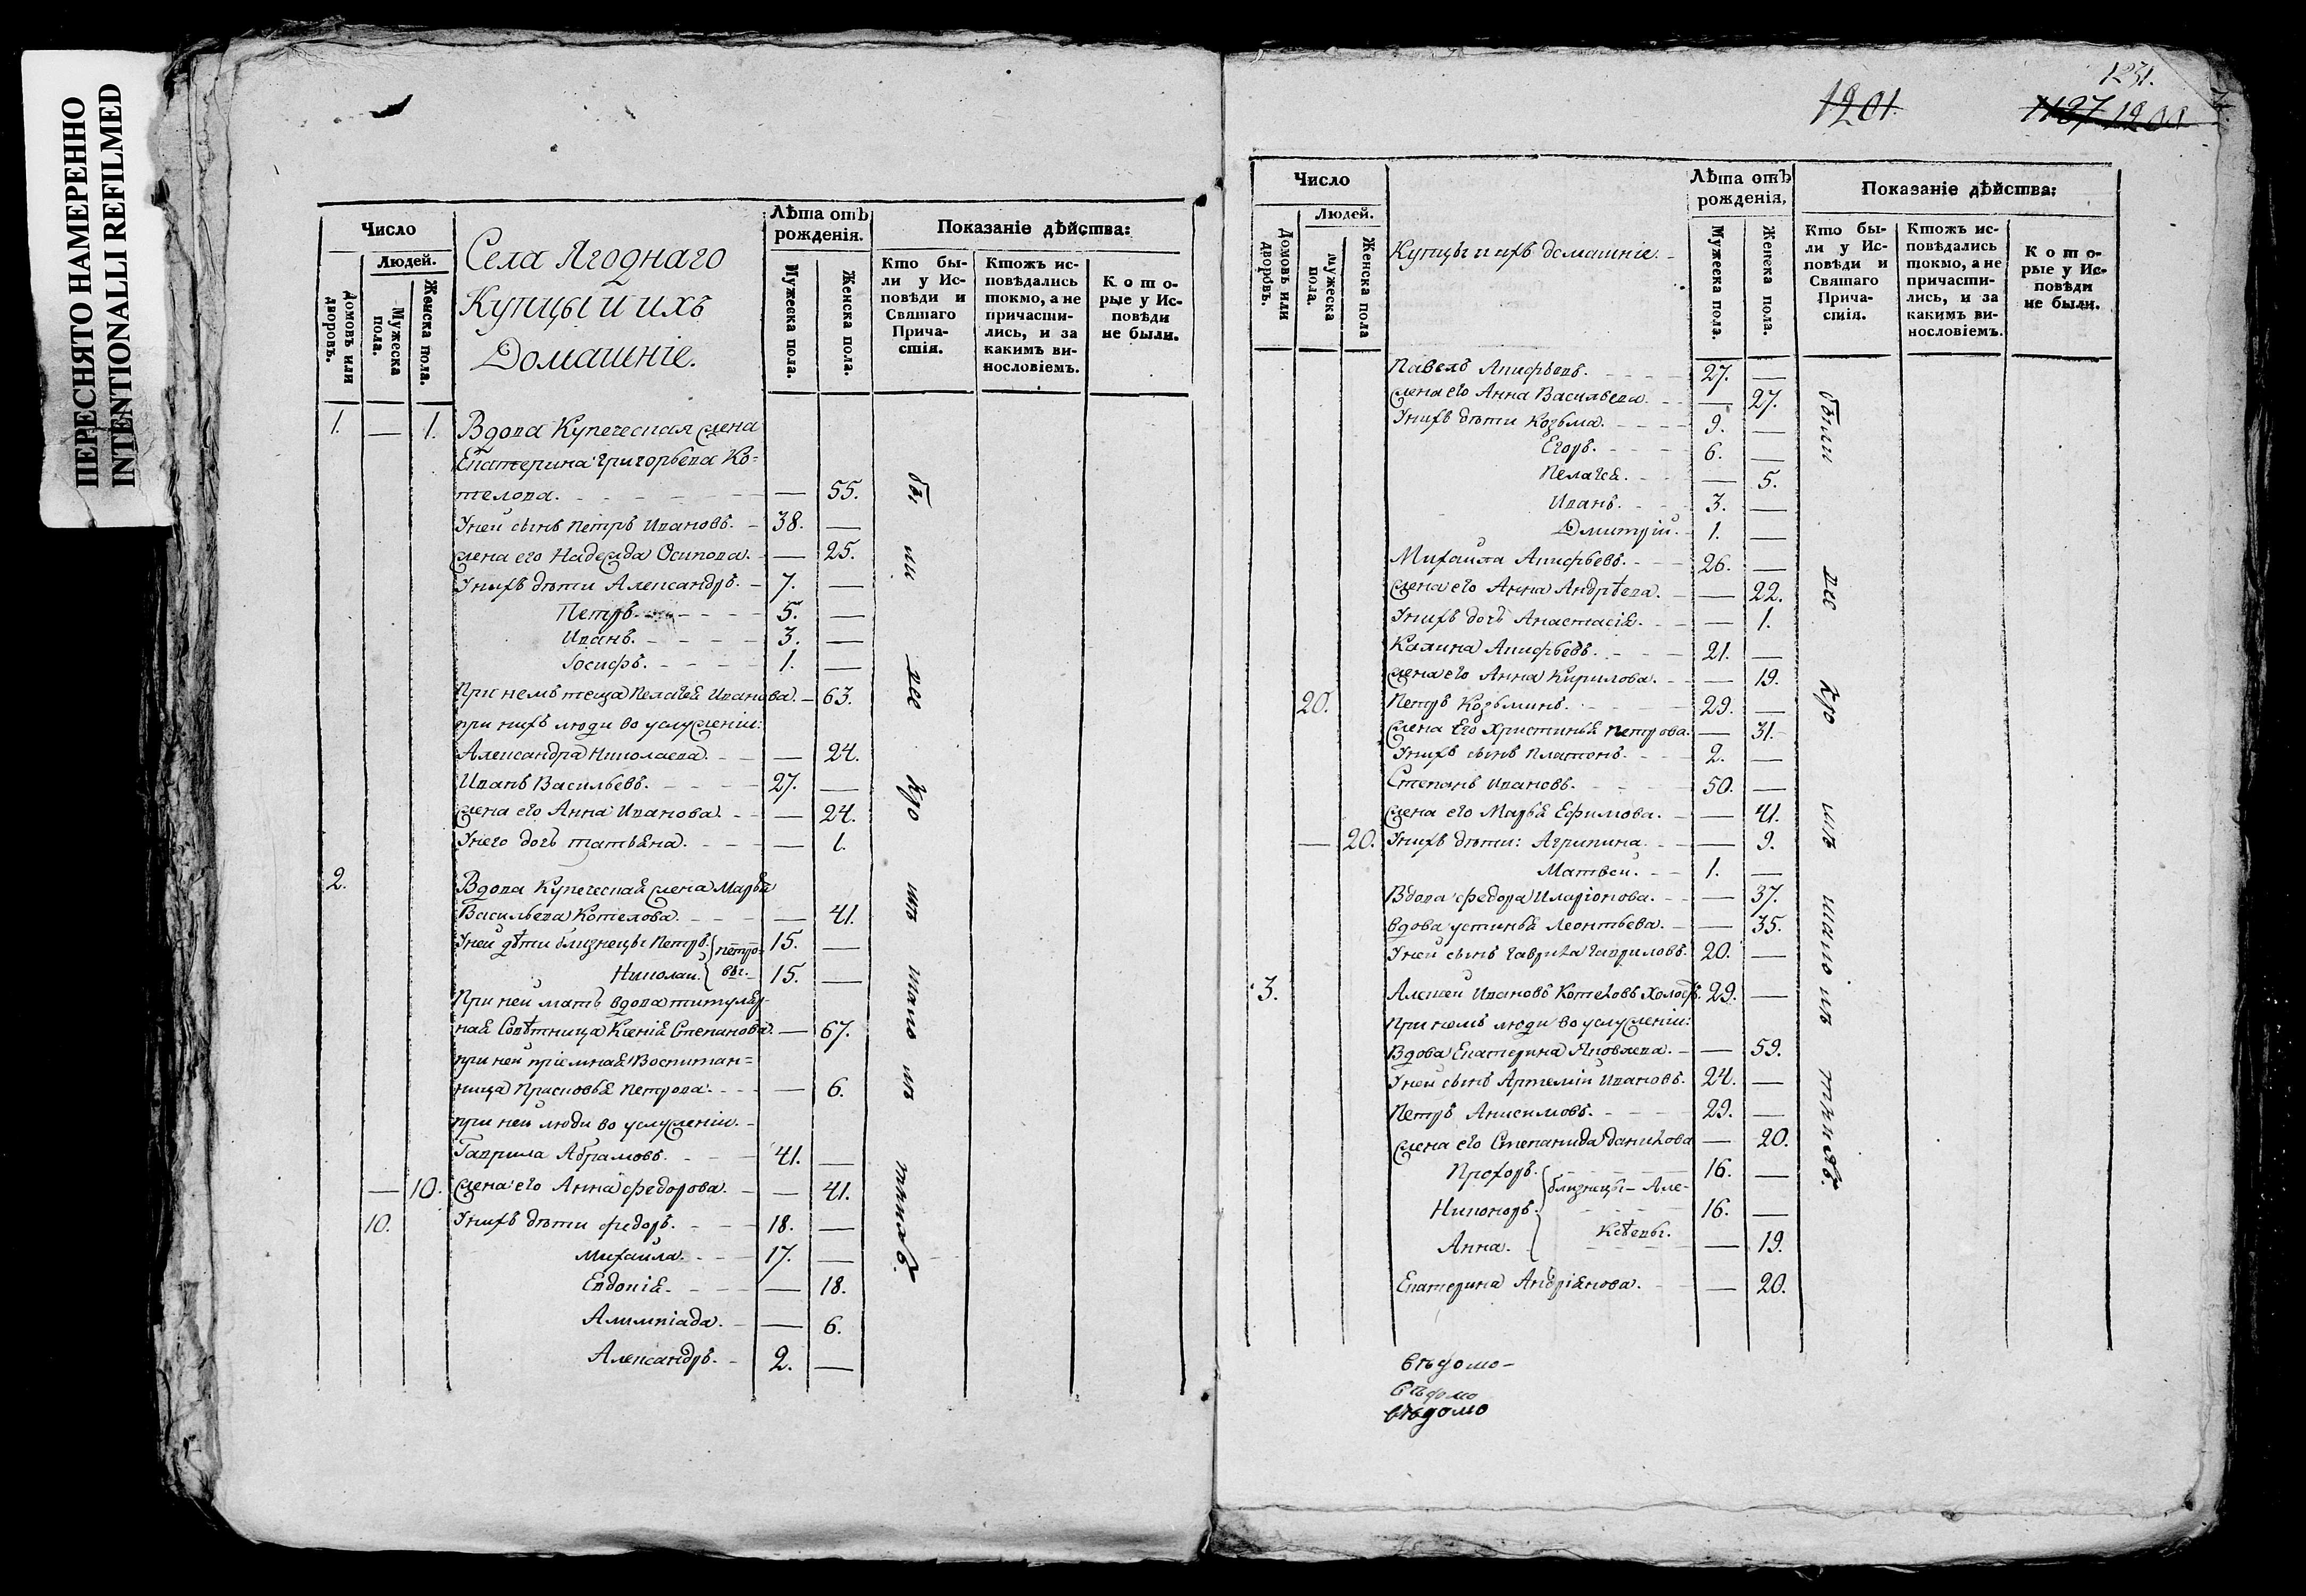 ПЕРЕСНЯТО НАМЕРЕННО
INTENTIONALLI REFILMED
Число
Людей.
Домовъ или дворовъ.
Мужеска пола.
Женска пола.
Села Ягоднаго
Купцы и ихъ
Домашніе.
Лѣта отъ рожденія.
Мужеска пола.
Женска пола.
Показаніе дѣйства:
Кто были у Исповѣди и Святаго Причастія.
Ктожъ исповѣдались токмо, а не причастились, и за какимъ винословіемъ.
Которые у Исповѣди не были.
1. — 1. Вдова Купеческая жена
Екатерина Григорьева Ко=
телова. — 55.
У ней сынъ Петръ Ивановъ. 38. —
жена его Надежда Осипова. — 25.
У нихъ дѣти Александръ. 7. —
Петръ. 5. —
Иванъ. 3. —
Іосифъ. 1. —
При немъ теща Пелагея Иванова. — 63.
при нихъ люди во услуженіи:
Александра Николаева. — 24.
Иванъ Васильевъ. 27. —
жена его Анна Иванова. — 24.
У него дочь Татьяна. — 1.
2. Вдова Купеческая жена Марья
Васильева Котелова. — 41.
У ней дѣти близнецы Петръ. 15. —
Николай. 15. —
Петровы.
При ней мать вдова титуляр-
ная Совѣтница Ксенія Степанова. — 67.
при ней пріемная Воспитан=
ница Прасковья Петрова. — 6.
при ней люди во услуженіи. —
Гаврила Абрамовъ. 41. —
— 10. жена его Анна Федорова. — 41.
10. У нихъ дѣти Федоръ. 18. —
Михайла. 17. —
Евдокія. — 18.
Алимпіада. — 6.
Александръ. 2. —
бы ли все кро мѣ мало лѣ тнихъ.
1231.
1201.
1187 1200
Число
Людей.
Домовъ или дворовъ.
Мужеска пола.
Женска пола
Купцы и ихъ домашніе. —
Лѣта отъ рожденія.
Мужеска пола.
Женска пола.
Показаніе дѣйства:
Кто были у Исповѣди и Святаго Причастія.
Ктожъ исповѣдались токмо, а не причастились, и за какимъ винословіемъ.
Которые у Исповѣди не были.
Павелъ 27. —
жена его Анна Васильева. — 27.
У нихъ дѣти Козьма. 9. —
Егоръ. 6. —
Пелагея. — 5.
Иванъ. 3. —
Дмитрій. 1. —
Михайла 26. —
жена его Анна Андрѣева. — 22.
У нихъ дочь Анастасія. — 1.
Калина 21. —
жена его Анна Кирилова. — 19.
20. Петръ Козьминъ. 29. —
жена Его Христинья Петрова. — 31.
У нихъ сынъ Платонъ. 2. —
Степанъ Ивановъ. 50. —
жена его Марья Ефимова. — 41.
— 20. У нихъ дѣти: Агрипина. — 9.
Матвей. 1. —
Вдова Федора Иларіонова. — 37.
вдова Устинья Леонтьева. — 35.
У ней сынъ Гаврила Гавриловъ. 20. —
3. Алексей Ивановъ Котеловъ Холостъ. 29. —
При немъ люди во услуженіи:
Вдова Екатерина Яковлева. — 59.
У ней сынъ Артемій Ивановъ. 24. —
Петръ Анисимовъ. 29. —
жена его Степанида Данилова — 20.
Прохоръ. 16. —
близнецы — Але-
Никоноръ. 16. —
ксѣевы.
Анна. — 19.
Екатерина Андріянова. — 20.
были все кро мѣ мало лѣ тнихъ.
вѣдомо —
вѣдомо
вѣдомо